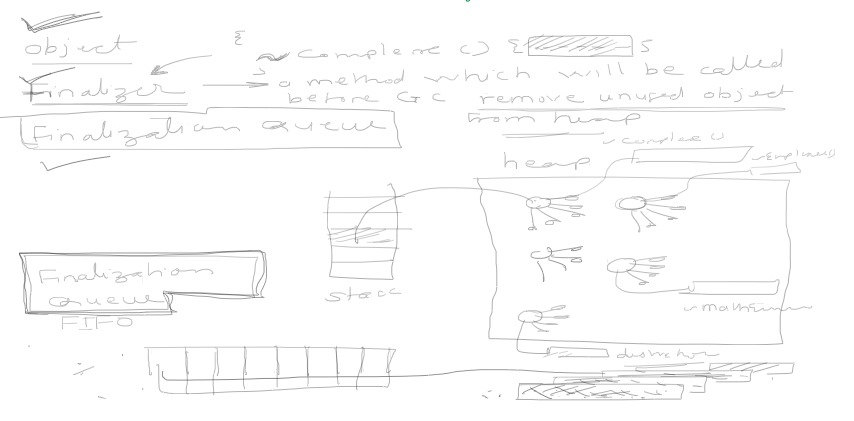 object
~ Complexe () { }
Finalizer → a method which will be called
before GC remove unused object
from heap
Finalization Queue
heap
~complex()
~Employee()
stack
Finalization
Queue
FIFO
destructor